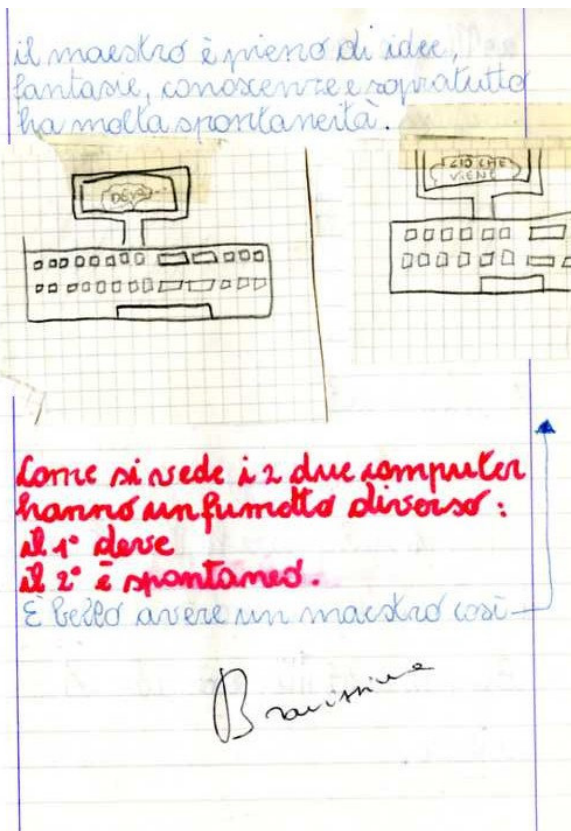 il maestro è pieno di idee,
fantasie, conoscenze e sopratutto
ha molta spontaneità.
DEVO...
CIÒ CHE
VIENE
Come si vede i 2 due computer
hanno un fumetto diverso:
il 1° deve
il 2° è spontaneo.
È bello avere un maestro così
Bravissima